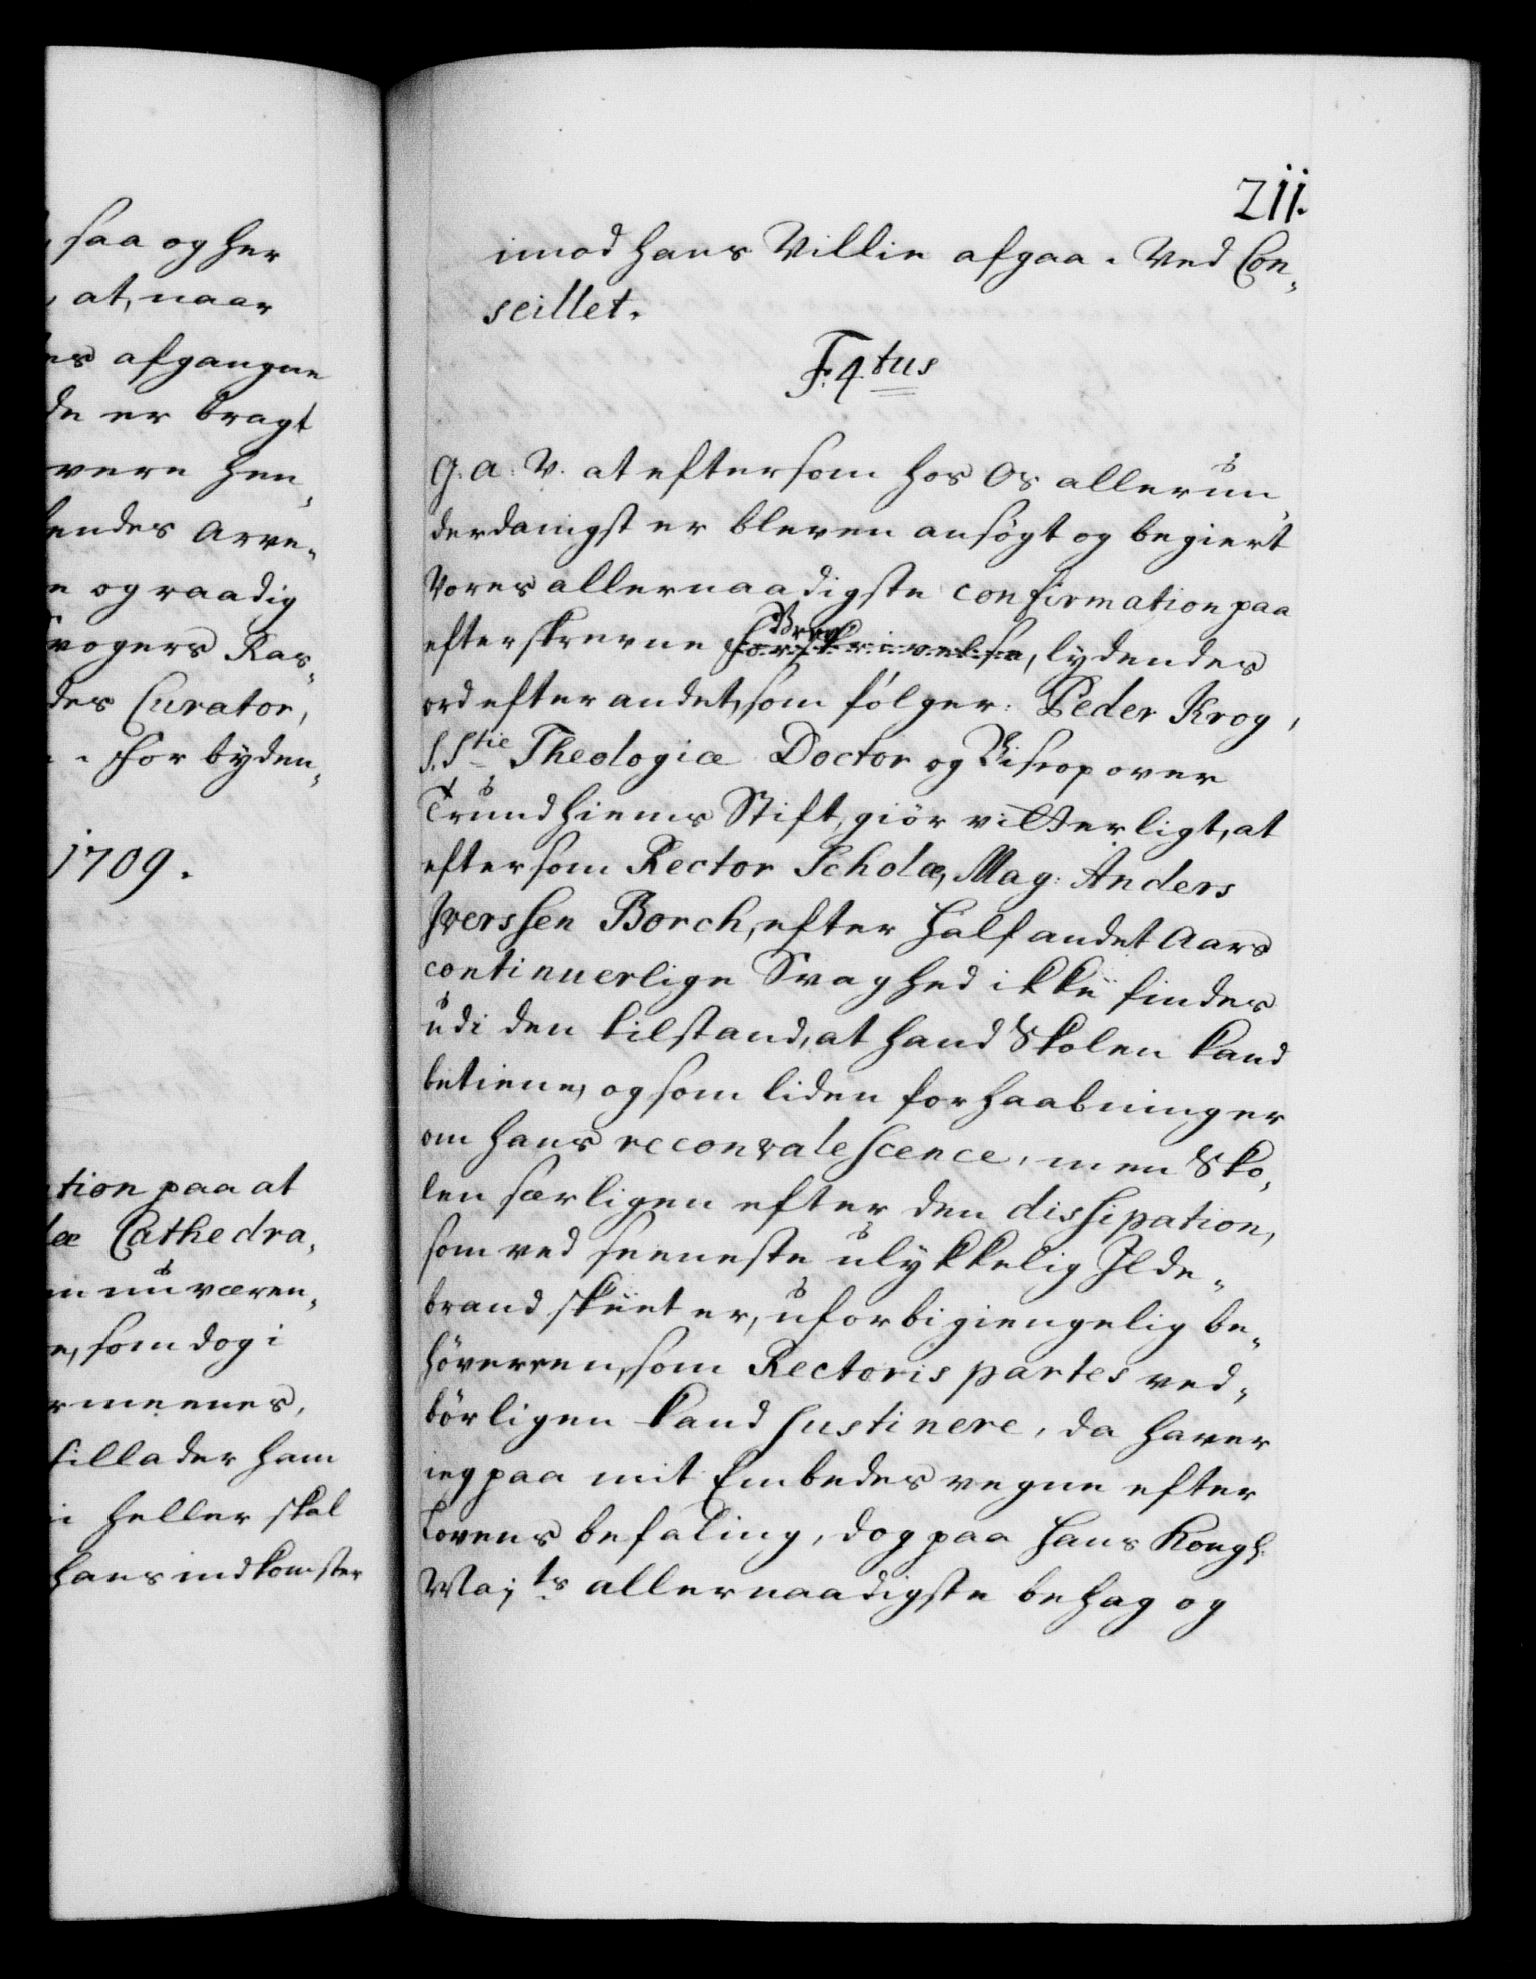 saa og her
at, naar
es afgangne
de er bragt
være hen¬
hendes Arve¬
e og raadig
vogers Ras¬
des Curator,
. for byden¬
1709.
tion paa at
læ Cathedra¬
m nu væren¬
e, som dog i
rmeenes,
tillader ham
i heller skal
hans indkomster
211.
imod hans Villie afgaa. Ved Con¬
seillet.
F. 4.tus
G. A: V. at eftersom hos Os allerun¬
derdanigst er bleven ansøgt og begiert
Vores allernaadigste confirmation paa
efterskrevne Brev forskrivelse, lydendes
ord efter andet, som følger: Peder Krog,
S. S.tæ Theologiæ Doctor og Biscop over
Trundhiems Stift, giør vitterligt, at
eftersom Rector Scholæ, Mag: Anders
Iverssen Borch, efter halfandet Aars
continuerlige Svaghed ikke findes
udi den tilstand, at hand Skolen kand
betiene, og som liden forhaabning er
om hans reconvalescence, men Sko¬
len særligen efter den dissipation,
som ved seeneste ulykkelig Ilde¬
brand skeet er, uforbigiengelig be¬
høver een, som Rectoris partes ved¬
børligen kand sustinere, da haver
ieg paa mit Embedes vegne efter
Lovens befaling, dog paa Hans Kongl.
Maj.ts allernaadigste behag og